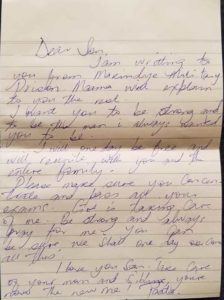 Dear Son,
I am writing to
you from Makindye Military
Prison Mama will explain
to you the rest
I want you to be strong and
to be that man i always wanted
you to be.
I will one day be free and
will reunite with you and the
entire family.
Please make sure you concen
trate and pass all your
exams. God is taking Care
of me. Be strong and always
pray for me. You
be sure, we shall one day
all this.
I love you Son Take Care
of your mum and
now the new me